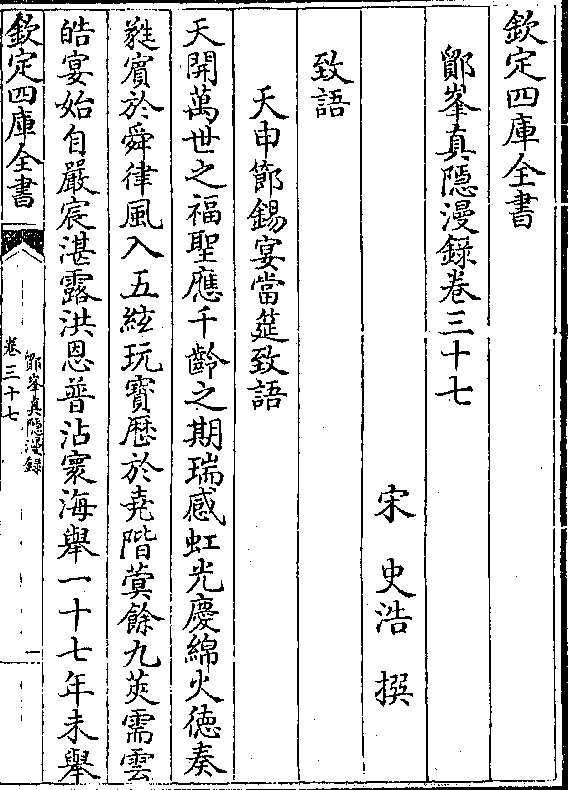 欽定四庫全書
鄮峯真隱漫録卷三十七
宋 史浩 撰
致語
天申節錫宴當筵致語
天開萬世之福聖應千齡之期瑞感虹光慶綿火徳奏
蕤賓於舜律風入五絃玩寳厯於堯階蓂餘九莢需雲
皓宴始自嚴宸湛露洪恩普沾寰海舉一十七年未舉
欽定四庫全書
鄮峯真隱漫録
卷三十七
一